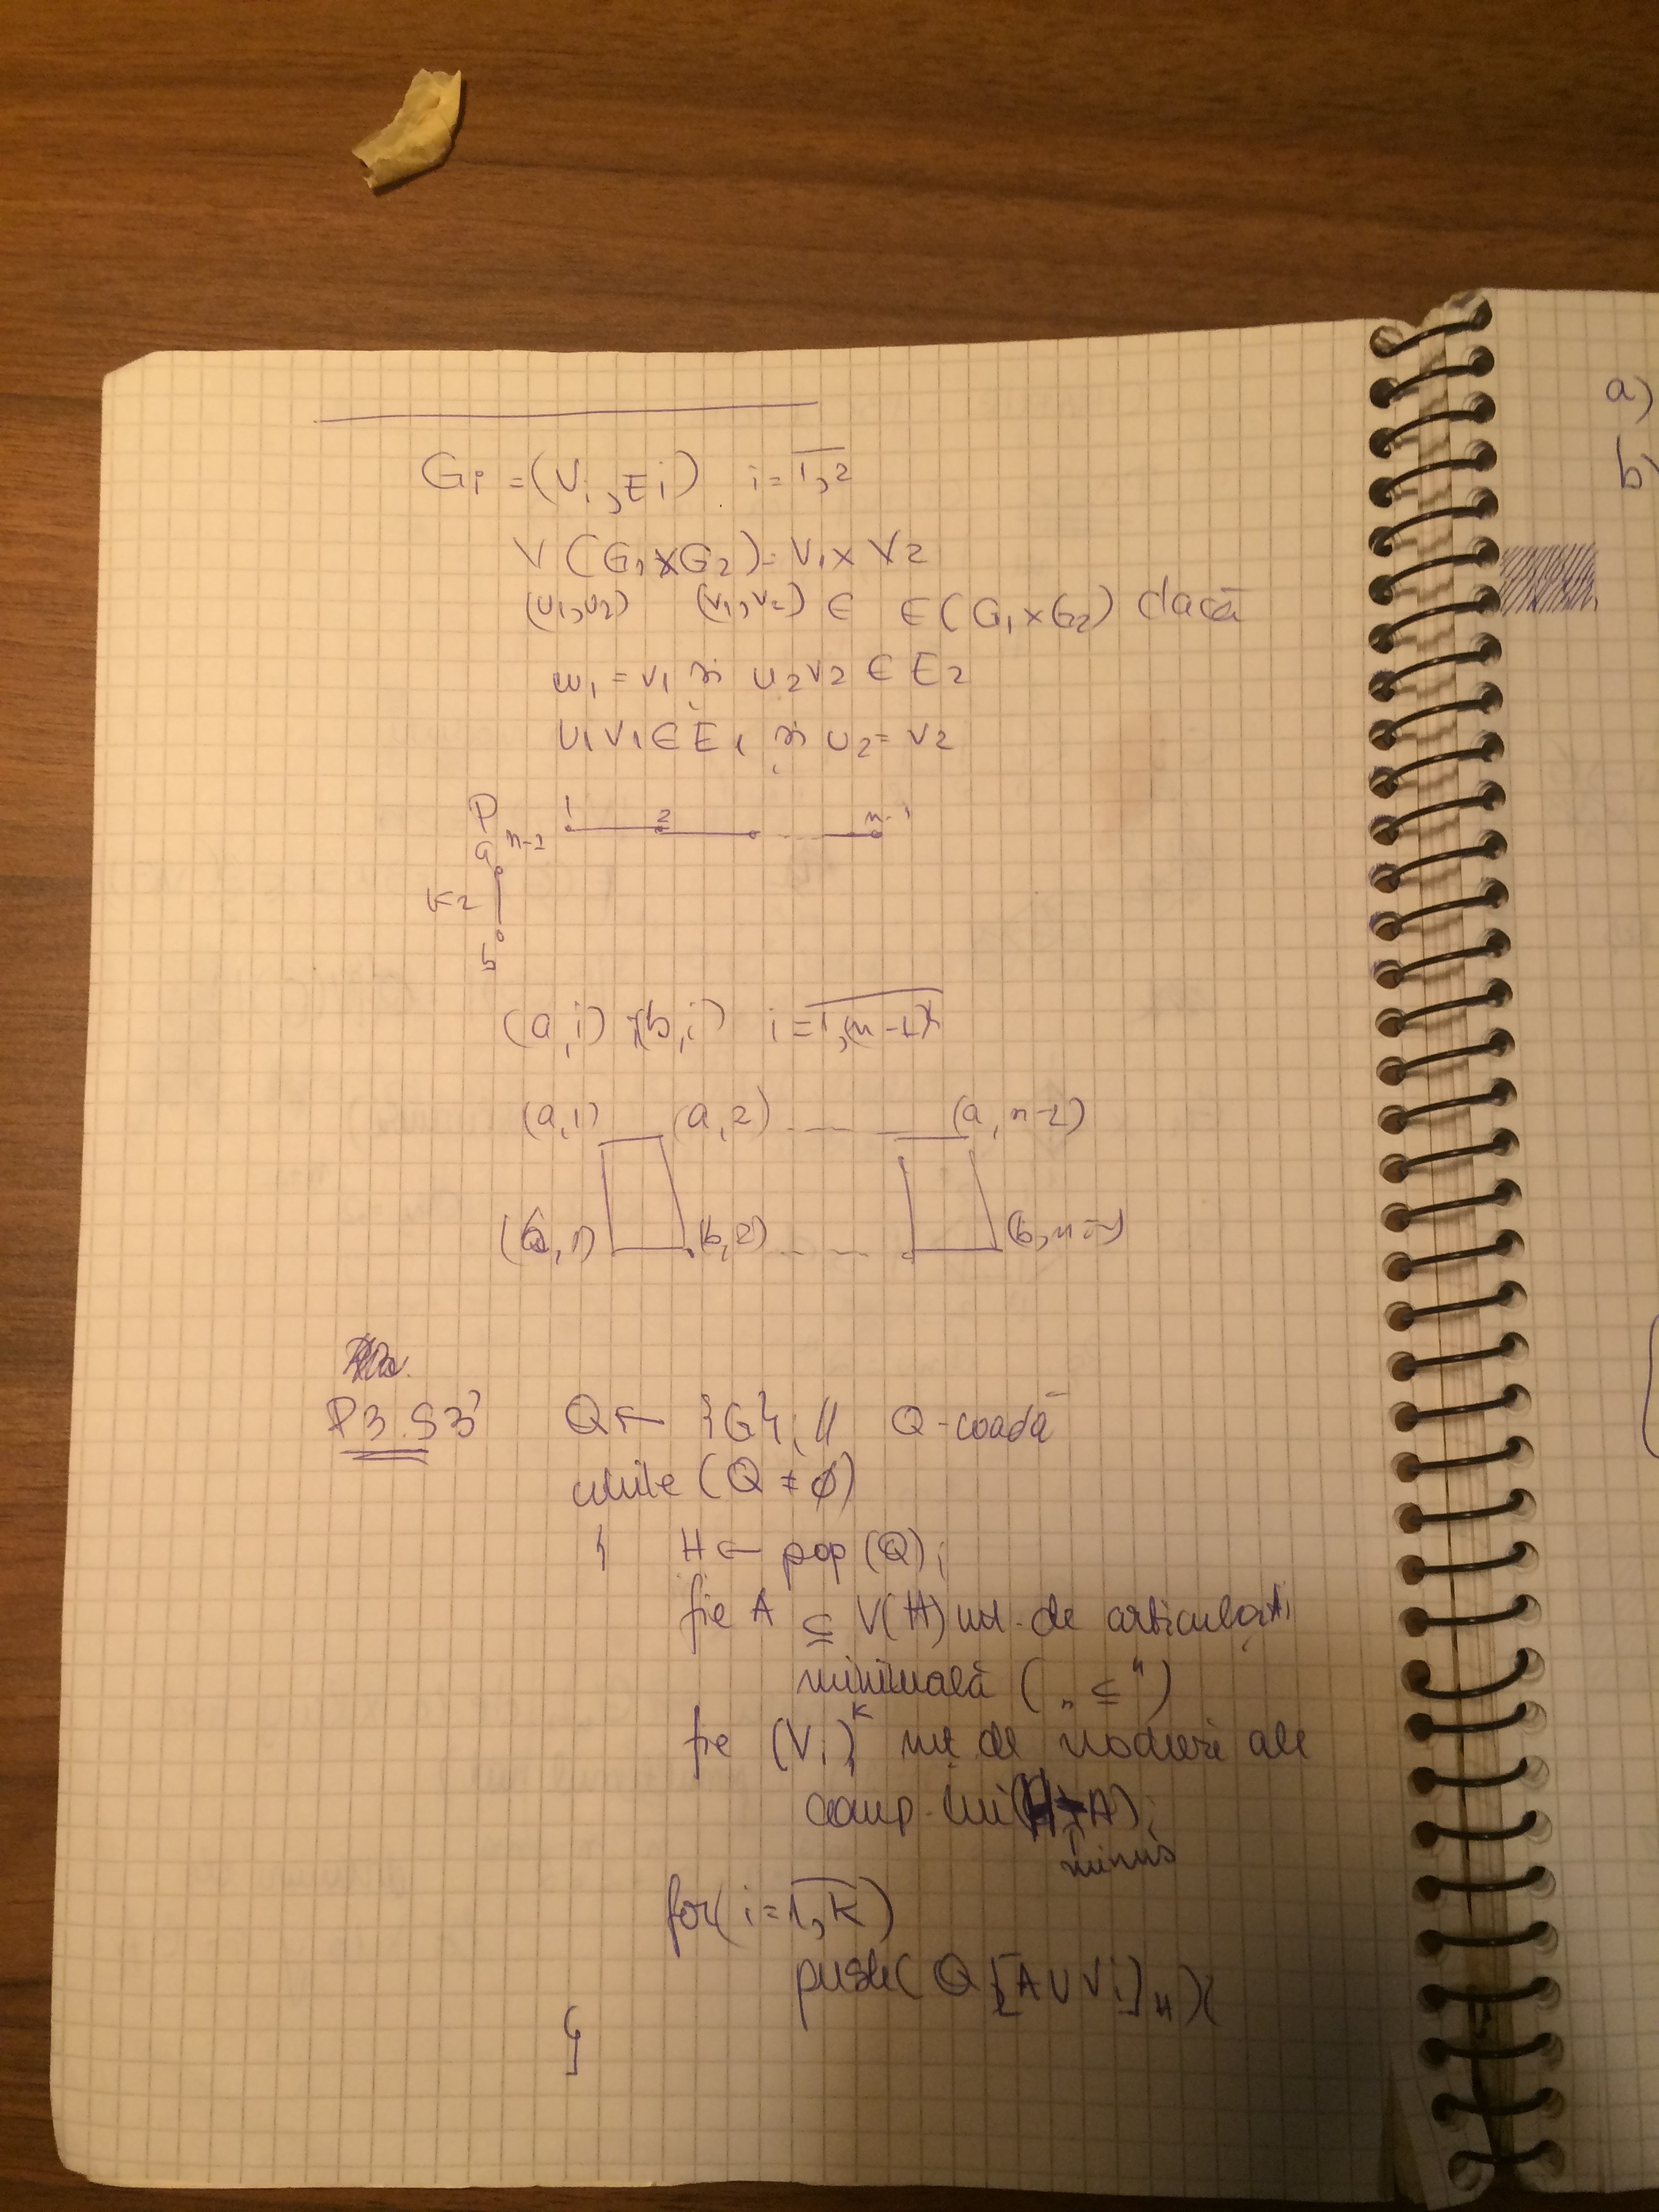 Gi = (Vi, Ei) i = 1,2
V (G1 × G2) = V1 × V2
(u1, u2) (v1, v2) ∈ E(G1 × G2) dacă
u1 = v1 și u2v2 ∈ E2
u1v1 ∈ E1 și u2 = v2
P n-1 1 2 n-1
a
K2
b
(a,i) (b,i) i = 1,(n-1)
(a,1) (a,2) ---- (a, n-1)
(b,1) (b,2) ---- (b, n-1)
P3. S3' Q ← {G}; // Q-coadă
while (Q ≠ ∅)
{ H ← pop (Q);
fie A ⊆ V(H) mt. de articulați
minimală („⊆")
fie (Vi)k mt de noduri ale
comp. lui (H-A);
minus
for( i = 1,k )
push( Q, [A ∪ Vi]H )
}
a)
b)